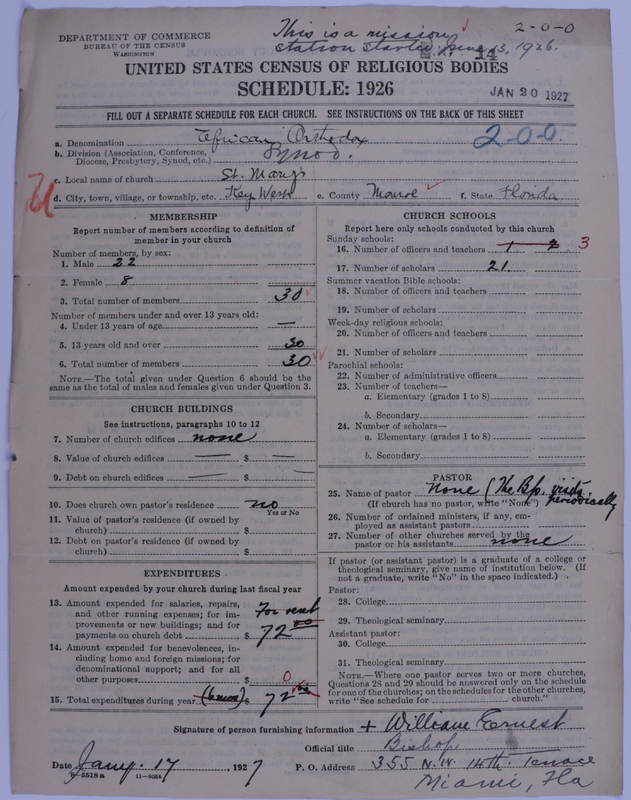 This is a mission
station started June 13, 1926.
2-0-0
14
DEPARTMENT OF COMMERCE
BUREAU OF THE CENSUS
WASHINGTON
UNITED STATES CENSUS OF RELIGIOUS BODIES
SCHEDULE: 1926
JAN 20 1927
FILL OUT A SEPARATE SCHEDULE FOR EACH CHURCH. SEE INSTRUCTIONS ON THE BACK OF THIS SHEET
a. Denomination African Orthodox
2-0-0.
b. Division (Association, Conference, Diocese, Presbytery, Synod, etc.) Synod.
c. Local name of church St. Mary's
d. City, town, village, or township, etc. Key West e. County Monroe f. State Florida
MEMBERSHIP
Report number of members according to definition of
member in your church
Number of members, by sex:
1. Male 22
2. Female 8
3. Total number of members 30
Number of members under and over 13 years old:
4. Under 13 years of age —
5. 13 years old and over 30
6. Total number of members 30
NOTE.—The total given under Question 6 should be the
same as the total of males and females given under Question 3.
CHURCH BUILDINGS
See instructions, paragraphs 10 to 12
7. Number of church edifices none
8. Value of church edifices — $ —
9. Debt on church edifices — $ —
10. Does church own pastor's residence no
Yes or No
11. Value of pastor's residence (if owned by
church) $
12. Debt on pastor's residence (if owned by
church) $
EXPENDITURES
Amount expended by your church during last fiscal year
13. Amount expended for salaries, repairs,
and other running expenses; for im-
provements or new buildings; and for
payments on church debt $ For rent 72 00
14. Amount expended for benevolences, in-
cluding home and foreign missions; for
denominational support; and for all
other purposes $ 0
15. Total expenditures during year (6 mos) $ 72 00
CHURCH SCHOOLS
Report here only schools conducted by this church
Sunday schools:
16. Number of officers and teachers 1 2 3
17. Number of scholars 21.
Summer vacation Bible schools:
18. Number of officers and teachers
19. Number of scholars
Week-day religious schools:
20. Number of officers and teachers
21. Number of scholars
Parochial schools:
22. Number of administrative officers
23. Number of teachers—
a. Elementary (grades 1 to 8)
b. Secondary
24. Number of scholars—
a. Elementary (grades 1 to 8)
b. Secondary
PASTOR
25. Name of pastor None (The Bp. visits periodically
(If church has no pastor, write "None")
26. Number of ordained ministers, if any, em-
ployed as assistant pastors
27. Number of other churches served by the
pastor or his assistants none
If pastor (or assistant pastor) is a graduate of a college or
theological seminary, give name of institution below. (If
not a graduate, write "No" in the space indicated.)
Pastor:
28. College
29. Theological seminary
Assistant pastor:
30. College
31. Theological seminary
NOTE.—Where one pastor serves two or more churches,
Questions 28 and 29 should be answered only on the schedule
for one of the churches; on the schedules for the other churches,
write "See schedule for church."
Signature of person furnishing information + William Ernest
Official title Bishop
Date Jany. 17, 1927 P. O. Address 355 N.W. 14th. Terrace
Miami, Fla
9-5518a 11-9054